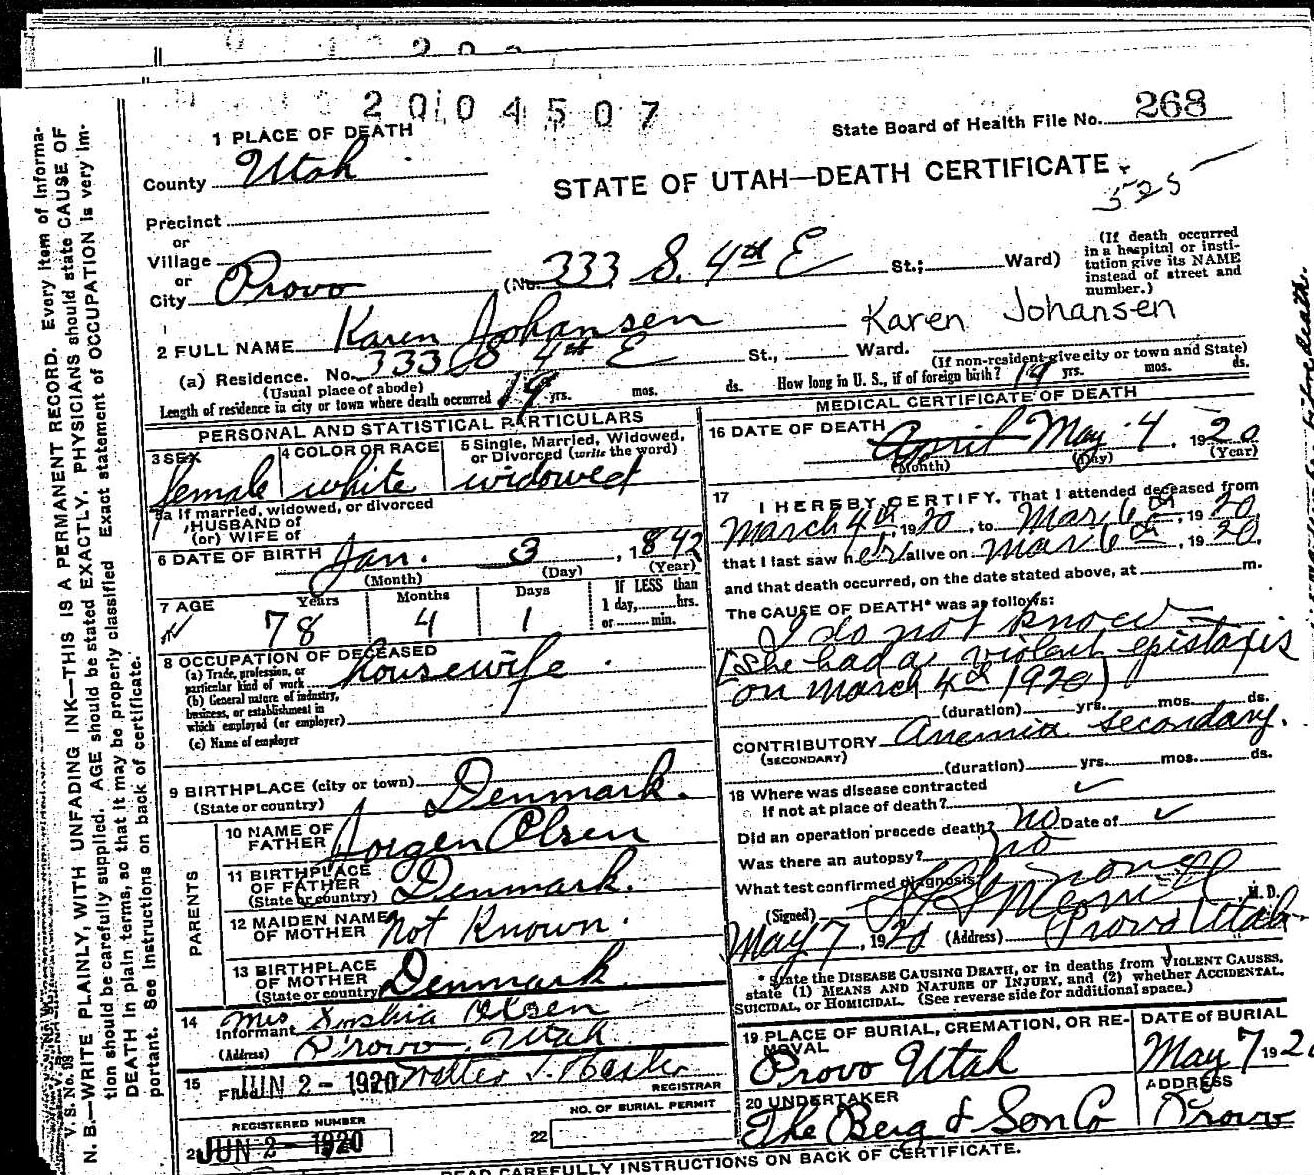 2004507
State Board of Health File No. 268
1 PLACE OF DEATH
County Utah
STATE OF UTAH—DEATH CERTIFICATE
525
Precinct
or
Village
or
City Provo (No. 333 S. 4th E St.; Ward)
(If death occurred in a hospital or institution give its NAME instead of street and number.)
2 FULL NAME Karen Johansen
Karen Johansen
(a) Residence. No. 333 S 4th E St., Ward.
(Usual place of abode)
(If non-resident give city or town and State)
Length of residence in city or town where death occurred 19 yrs. mos. ds. How long in U. S., if of foreign birth? 19 yrs. mos. ds.
PERSONAL AND STATISTICAL PARTICULARS
3 SEX female
4 COLOR OR RACE white
5 Single, Married, Widowed, or Divorced (write the word) widowed
5a If married, widowed, or divorced
HUSBAND of
(or) WIFE of
6 DATE OF BIRTH Jan. 3, 1842
(Month) (Day) (Year)
7 AGE
Years 78
Months 4
Days 1
If LESS than
1 day, hrs.
or min.
8 OCCUPATION OF DECEASED
(a) Trade, profession, or
particular kind of work housewife
(b) General nature of industry,
business, or establishment in
which employed (or employer)
(c) Name of employer
9 BIRTHPLACE (city or town) Denmark.
(State or country)
PARENTS
10 NAME OF FATHER Jorgen Olsen
11 BIRTHPLACE OF FATHER (State or country) Denmark.
12 MAIDEN NAME OF MOTHER Not Known.
13 BIRTHPLACE OF MOTHER (State or country) Denmark.
14 Informant Mrs Olsen
(Address) Provo, Utah
15 JUN 2 - 1920 Walter REGISTRAR
REGISTERED NUMBER
21 JUN 2 - 1920
NO. OF BURIAL PERMIT
22
MEDICAL CERTIFICATE OF DEATH
16 DATE OF DEATH April May 4. 1920
(Month) (Day) (Year)
17 I HEREBY CERTIFY, That I attended deceased from
March 4th, 1920, to Mar 6th, 1920
that I last saw her alive on Mar 6th, 1920,
and that death occurred, on the date stated above, at m.
The CAUSE OF DEATH* was as follows:
I do not know
(She had a violent epistaxis
on March 4th 1920)
(duration) yrs. mos. ds.
CONTRIBUTORY Anemia secondary.
(SECONDARY)
(duration) yrs. mos. ds.
18 Where was disease contracted
If not at place of death?
Did an operation precede death? no Date of
Was there an autopsy? no
What test confirmed diagnosis? none
(Signed) M. D.
May 7, 1920 (Address) Provo Utah.
* State the DISEASE CAUSING DEATH, or in deaths from VIOLENT CAUSES,
state (1) MEANS AND NATURE OF INJURY, and (2) whether ACCIDENTAL,
SUICIDAL, OR HOMICIDAL. (See reverse side for additional space.)
19 PLACE OF BURIAL, CREMATION, OR REMOVAL
Provo Utah
DATE OF BURIAL
May 7 1920
20 UNDERTAKER
The Berg & Son Co
ADDRESS
Provo
READ CAREFULLY INSTRUCTIONS ON BACK OF CERTIFICATE.
V. S. No. 98
N. B.—WRITE PLAINLY, WITH UNFADING INK—THIS IS A PERMANENT RECORD. Every item of information should be carefully supplied. AGE should be stated EXACTLY. PHYSICIANS should state CAUSE OF DEATH in plain terms, so that it may be properly classified. Exact statement of OCCUPATION is very important. See instructions on back of certificate.